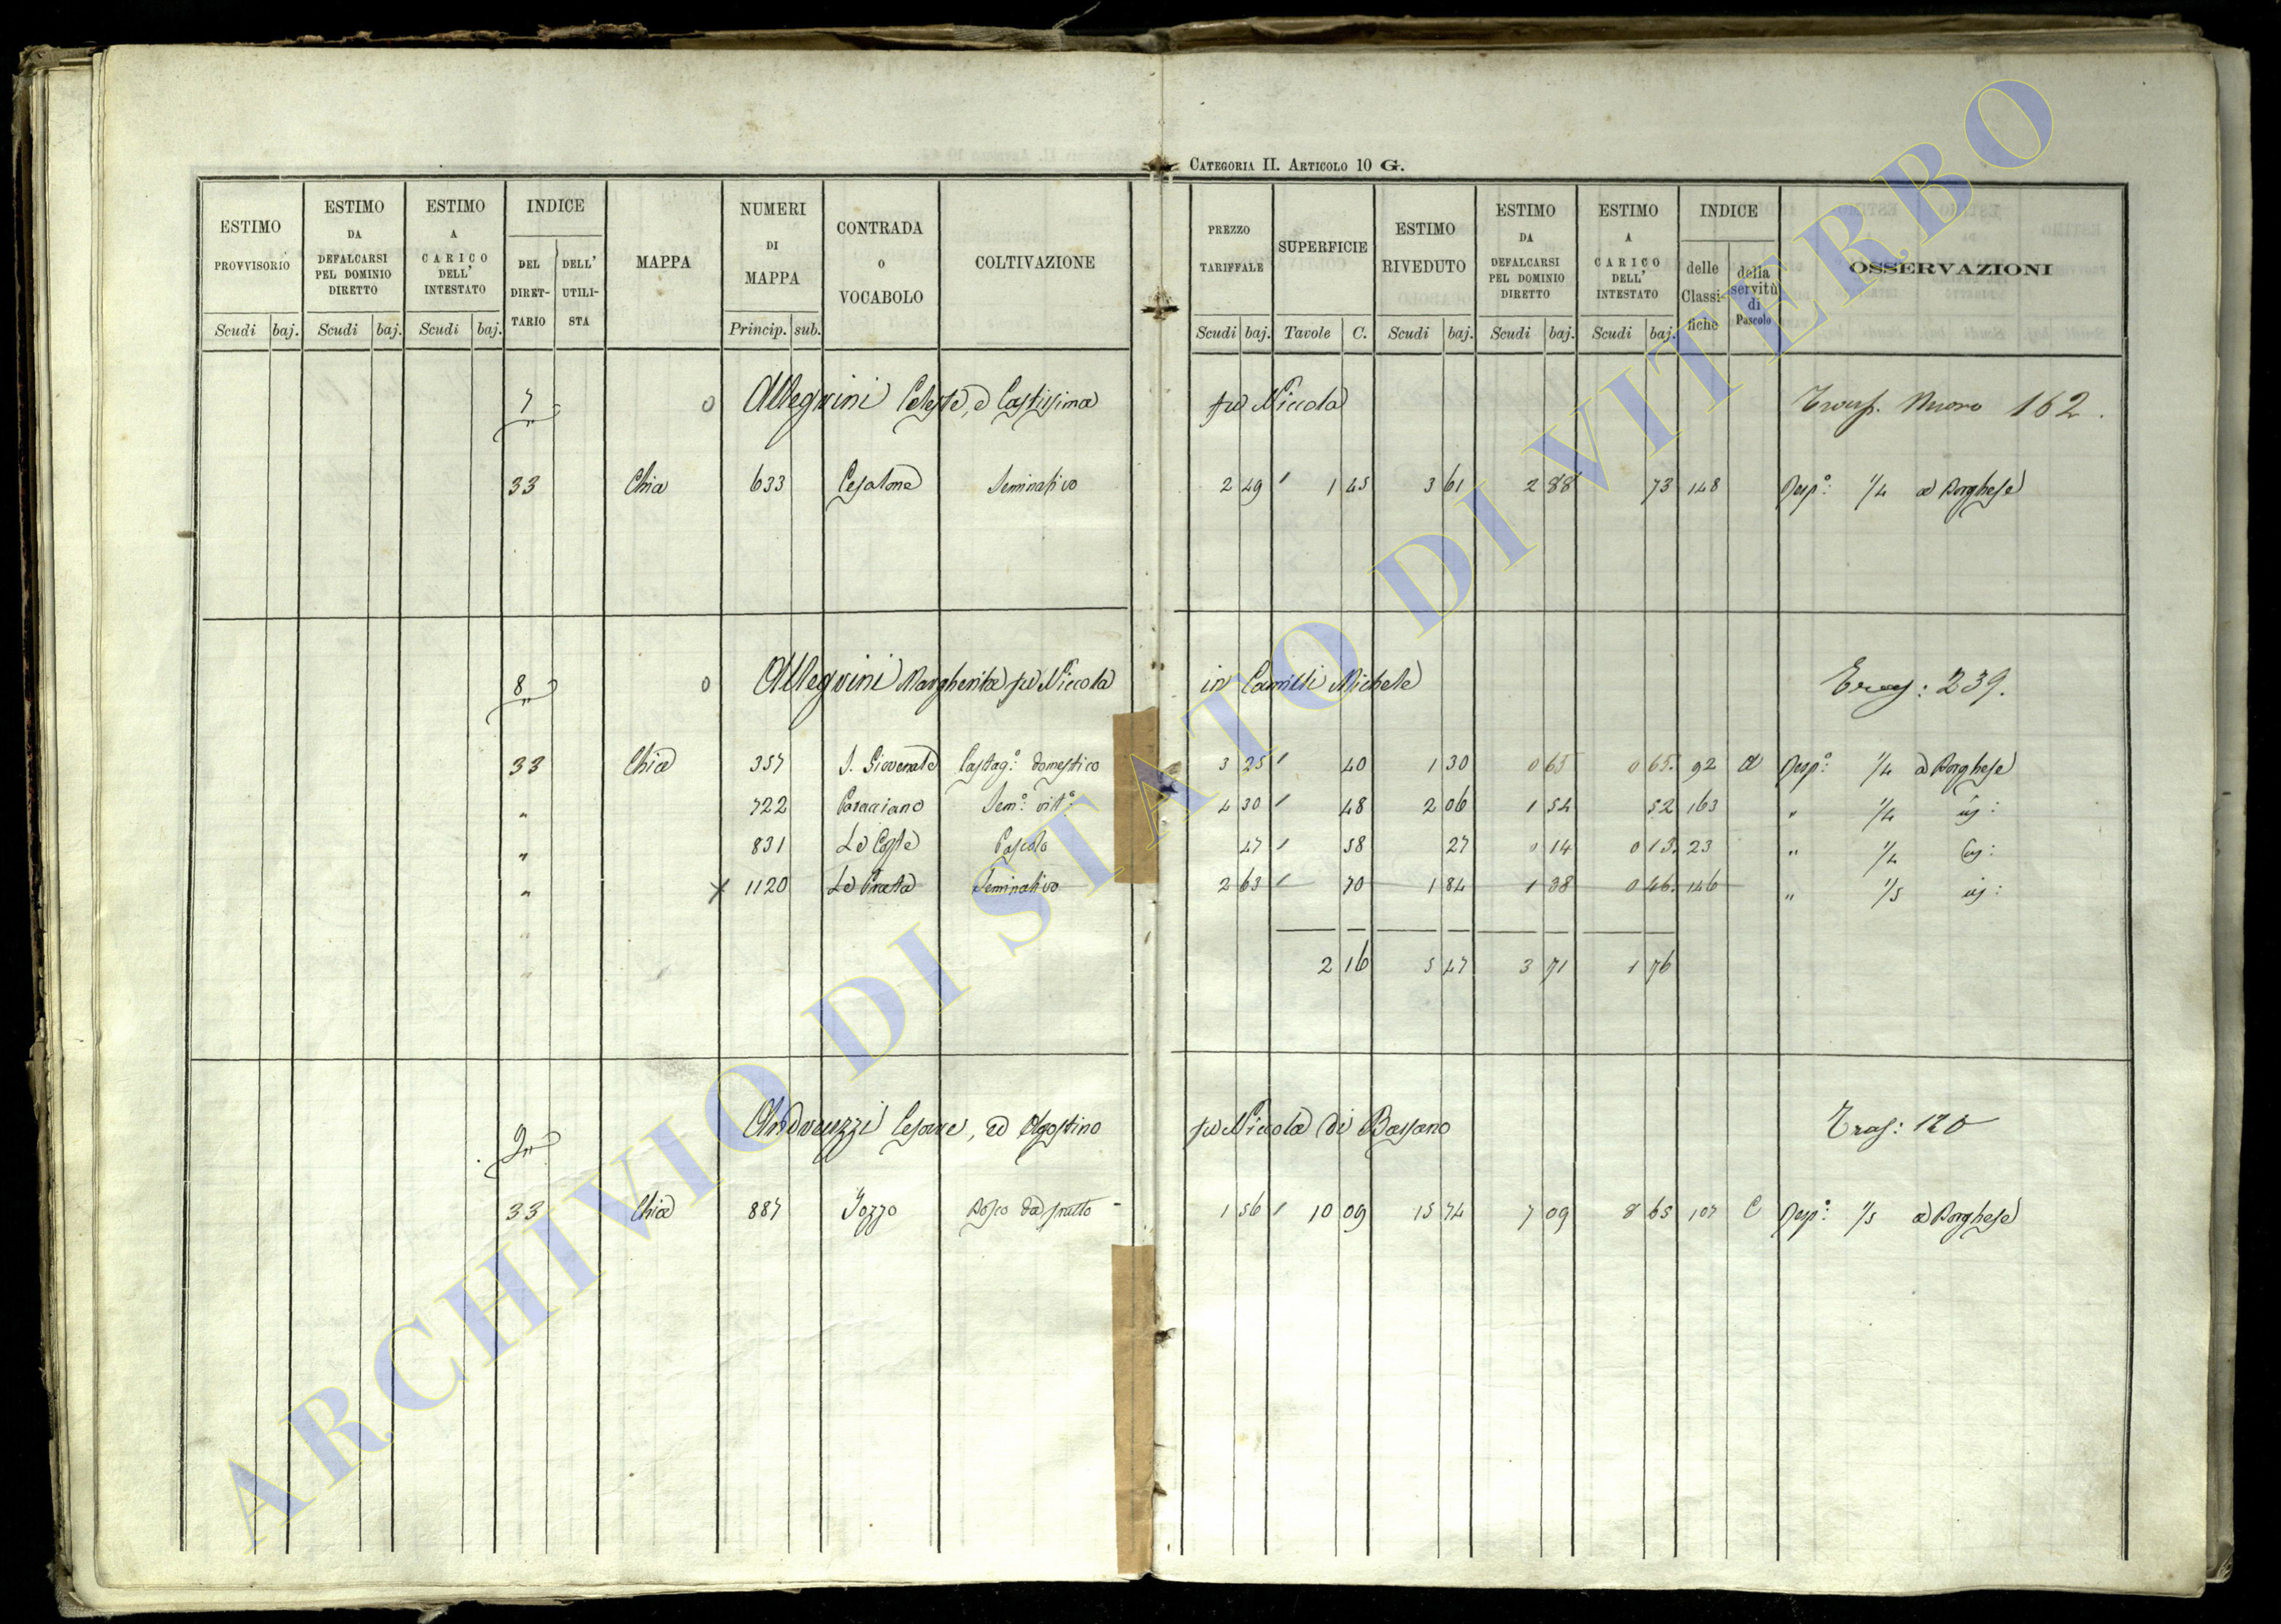 CATEGORIA II. ARTICOLO 10 G.
ESTIMO PROVVISORIO
Scudi baj.
ESTIMO DA DEFALCARSI PEL DOMINIO DIRETTO
Scudi baj.
ESTIMO A CARICO DELL' INTESTATO
Scudi baj.
INDICE
DEL DIRET-TARIO
DELL' UTILI-STA
MAPPA
NUMERI DI MAPPA
Princip. sub.
CONTRADA O VOCABOLO
COLTIVAZIONE
PREZZO TARIFFALE
Scudi baj.
SUPERFICIE
Tavole C.
ESTIMO RIVEDUTO
Scudi baj.
ESTIMO DA DEFALCARSI PEL DOMINIO DIRETTO
Scudi baj.
ESTIMO A CARICO DELL' INTESTATO
Scudi baj.
INDICE
delle Classi-fiche
della servitù di Pascolo
OSSERVAZIONI
7 Allegrini Celeste, e Castissima fu Niccola Trasp. Nuovo 162.
33 Chia 633 Cesalone Seminativo 2 49 1 45 3 61 2 88 73 148 Risp.º: 1/4 a Borghese
8 Allegrini Margherita fu Niccola in Camilli Michele Tras: 239.
33 Chia 357 S. Giovenale Castag.º: domestico 3 25 40 1 30 0 65 0 65. 92 a Risp.º: 1/4 a Borghese
" 722 Sem.º: vit.º: 4 30 48 2 06 1 54 52 163 " 1/4
" 831 Le Coste Pascolo 47 58 27 0 14 0 13. 23 " 1/4
" x 1120 Le Prata Seminativo 2 63 70 1 84 1 38 0 46. 146 " 1/5
2 16 5 47 3 71 1 76
9 Andreuzzi Cesare, ed Agostino fu Niccola di Bassano Tras: 120
33 Chia 887 Pozzo Bosco da frutto 1 56 10 09 15 74 7 09 8 65 107 C Risp.º: 1/5 a Borghese
ARCHIVIO DI STATO DI VITERBO